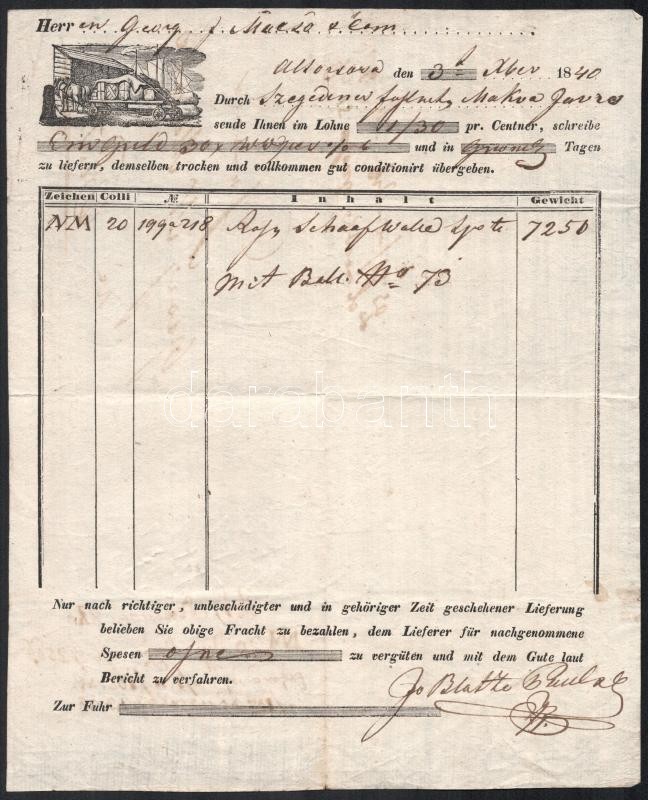 Herren Georg J. Maczo & Com
Altorsova den 3t Xber 1840
Durch Szegediner Makra Javre
sende Ihnen im Lohne f 1/30 pr. Centner, schreibe
Ein Guld 30 x und in Tagen
zu liefern, demselben trocken und vollkommen gut conditionirt übergeben.
Zeichen Colli № Inhalt Gewicht
NM 20 199 a 218 Schaaf Wolle 7250
Mit Boll. No 73
darabanth
Nur nach richtiger, unbeschädigter und in gehöriger Zeit geschehener Lieferung
belieben Sie obige Fracht zu bezahlen, dem Lieferer für nachgenommene
Spesen ohne zu vergüten und mit dem Gute laut
Bericht zu verfahren.
Zur Fuhr